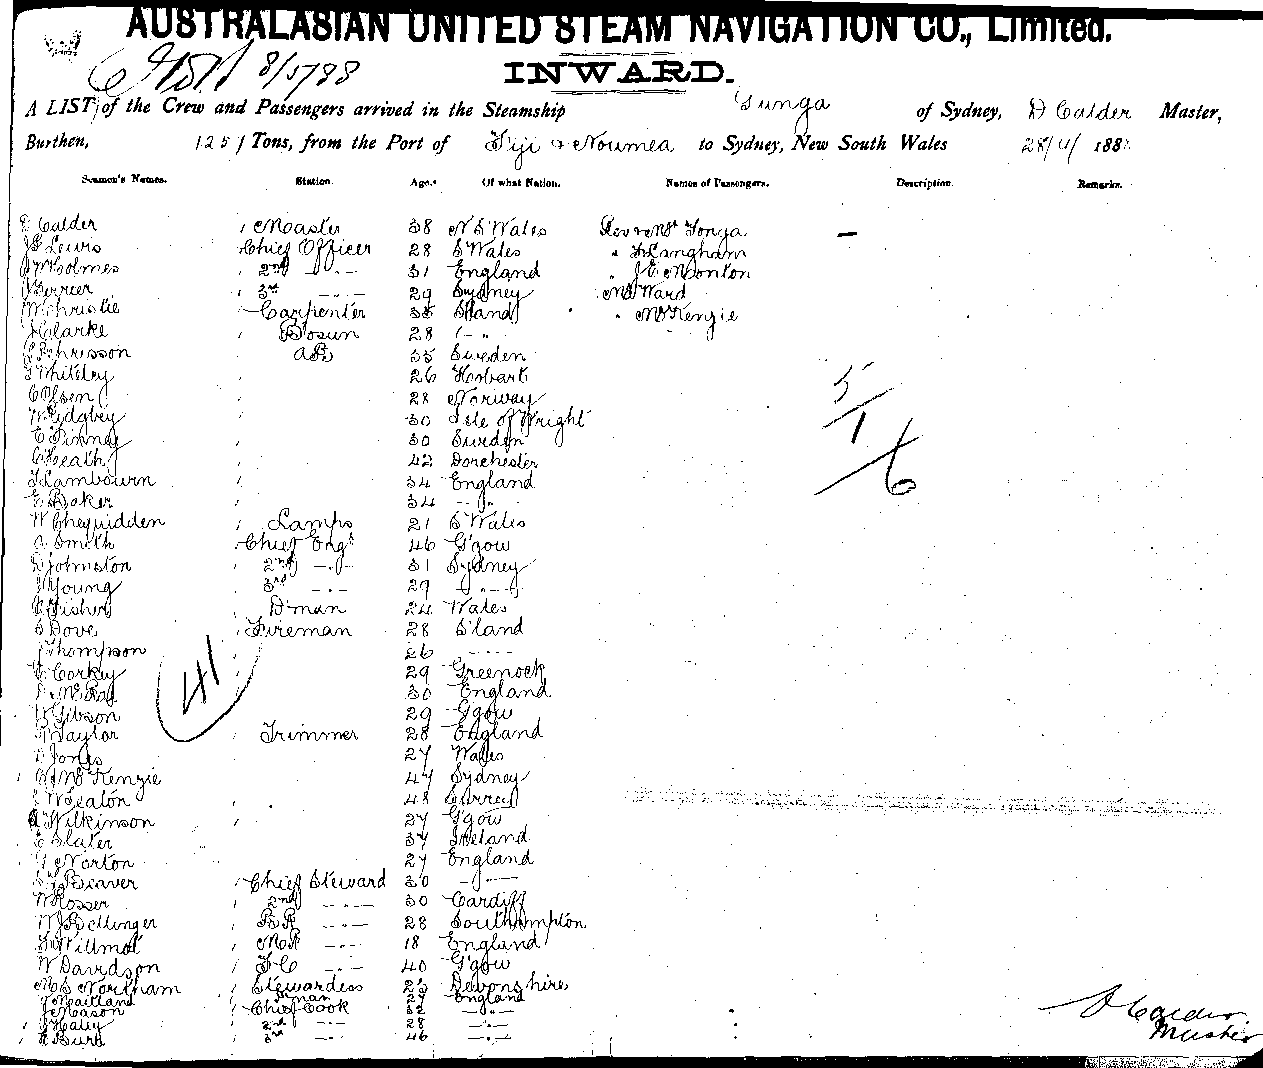 AUSTRALASIAN UNITED STEAM NAVIGATION CO., Limited.
8/5/88
INWARD.
A LIST of the Crew and Passengers arrived in the Steamship Tunga of Sydney, D Calder Master,
Burthen, 1251 Tons, from the Port of Fiji & Noumea to Sydney, New South Wales 28/4/ 188
Seamen's Names. Station. Age. Of what Nation. Names of Passengers. Description. Remarks.
D Calder Master 38 N S Wales Tonga —
Lewis Chief Officer 28 S Wales Langham
Holmes 2nd -"- 31 England J E Moulton
3rd -"- 29 Sydney Ward
W Christie Carpenter 35 S'land McKenzie
J Clarke Bosun 28 -"-
AB 35 Sweden
Whiteley 26 Hobart
C Olsen 28 Norway
30 Isle of Wright
30 Sweden
C Heath 42 Dorchester
Lambourn 34 England
E Baker 34 -"-
W Cheguidden Lamps 21 S Wales
Smith Chief Engr 46 G'gow
D Johnston 2nd -"- 31 Sydney
J Young 3rd -"- 29 -"-
Fisher D'man 24 Wales
S Dove Fireman 28 S'land
J Thompson 26
Corkey 29 Greenock
30 England
W Gibson 29 G'gow
Taylor Trimmer 28 England
Jones 27 Wales
McKenzie 47 Sydney
Seaton 48 Surrey
Wilkinson 27 G'gow
C Slater 37 Ireland
Norton 27 England
Beaver Chief Steward 30 -"-
W Rosser 2nd -"- 30 Cardiff
W J Bellinger BR -"- 28 Southampton
Willmot MR -"- 18 England
W Davidson FC -"- 40 G'gow
Mrs Northam Stewardess 23 Devonshire
J Maitland P'man 27 England
J Mason Chief Cook 32 -"-
J Haley 2nd -"- 28 -"-
Burd 3rd -"- 46 -"-
41
5/1/6
D Calder
Master